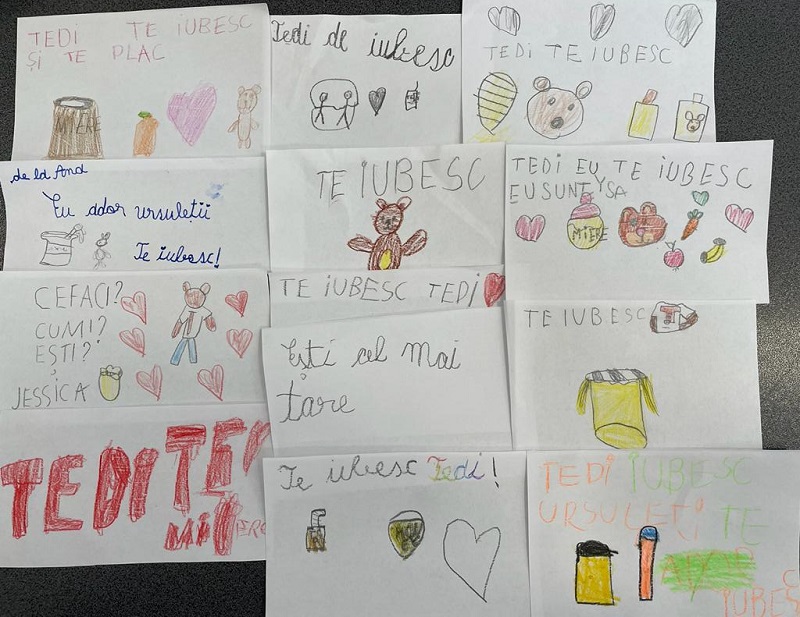 TEDI TE IUBESC
ȘI TE PLAC
MIERE
Tedi de iubesc
TEDI TE IUBESC
de la And
Eu ador ursuleții
Te iubesc!
TE IUBESC
TEDI EU TE IUBESC
EU SUNT YSA
MIERE
CEFACI?
CUMI?
EȘTI?
JESSICA
T
TE IUBESC TEDI
Ești cel mai
tare
TE IUBESC
T
TEDI TE
Te iubesc Tedi!
TEDI IUBESC
URSULEȚI TE
IUBES